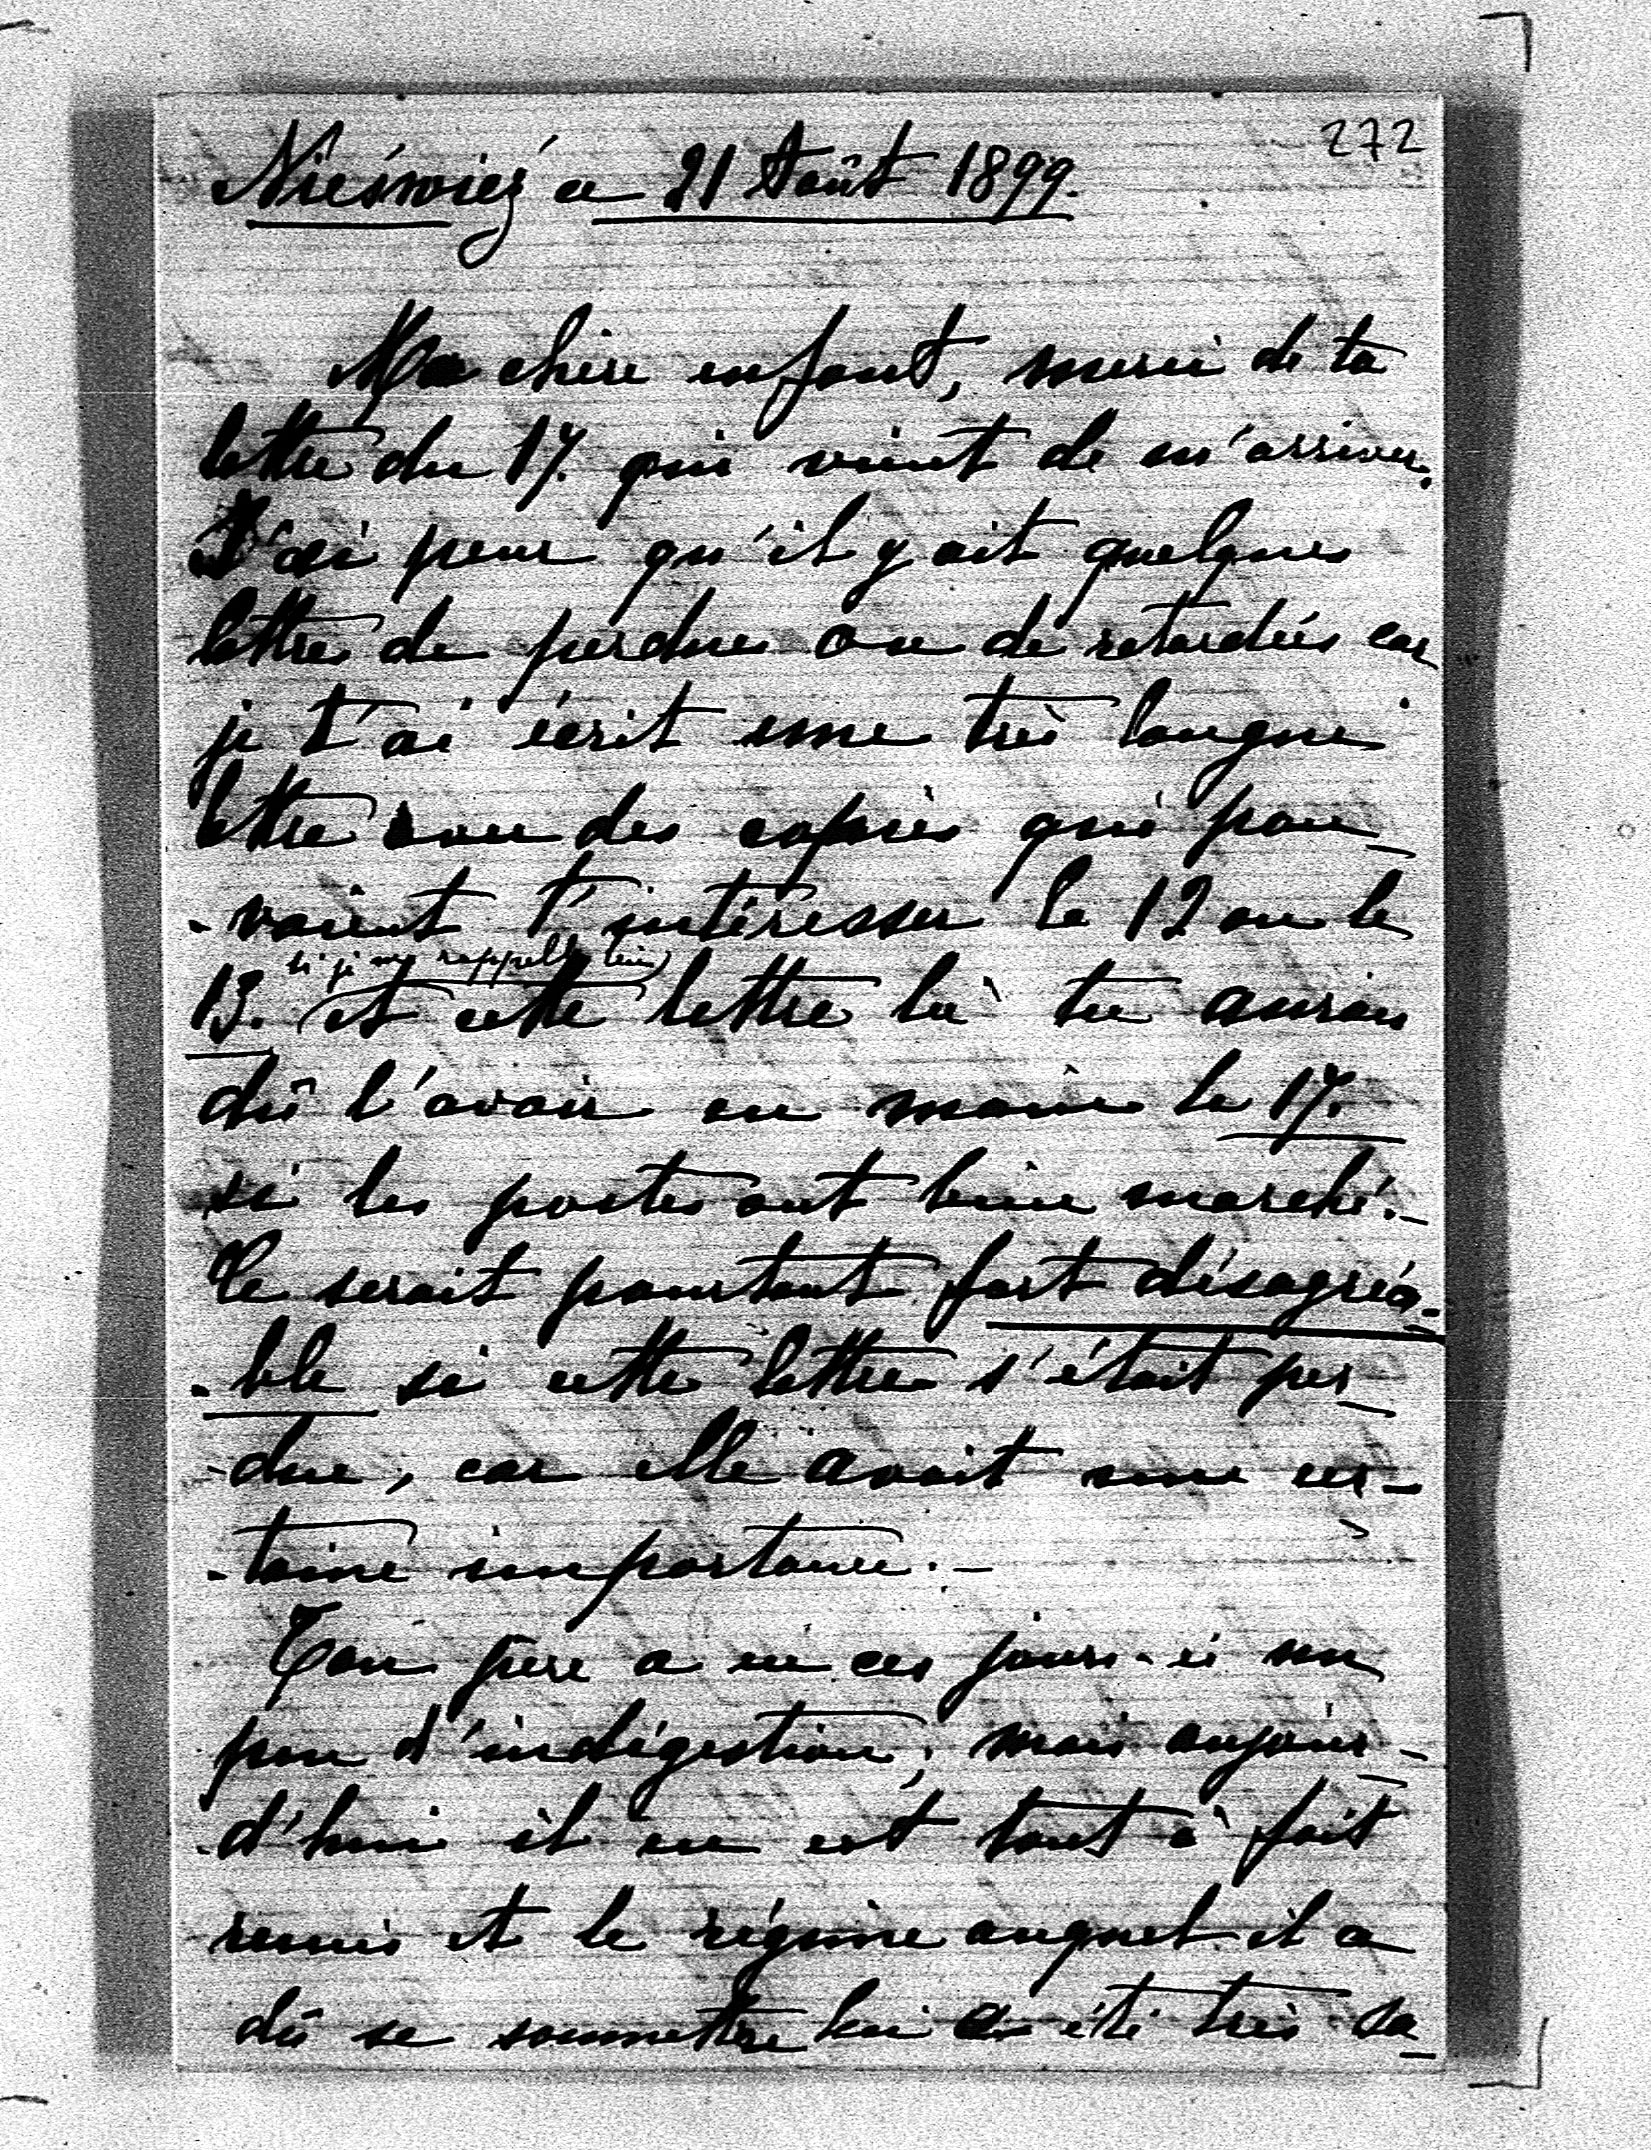 272
Nieśwież a 21 Août 1899.
Ma chère enfant, merci de ta
lettre du 17. qui vient de m'arriver.
J'ai peur qu'il y ait quelques
lettres de perdues ou de retardées car
je t'ai écrit une très longue
lettre avec des copies qui pou-
-vaient t'intéresser le 12 ou le
si je me rappelle bien)
13. (et cette lettre là tu aurais
dû l'avoir en mains le 17.
si les postes ont bien marché. -
Ce serait pourtant fort désagréa-
-ble si cette lettre s'était per-
-due, car elle avait une cer-
-taine importance. -
Ton père a eu ces jours-ci un
peu d'indigestion, mais aujour-
-d'hui il en est tout à fait
remis et le régime auquel il a
dû se soumettre lui a été très sa-